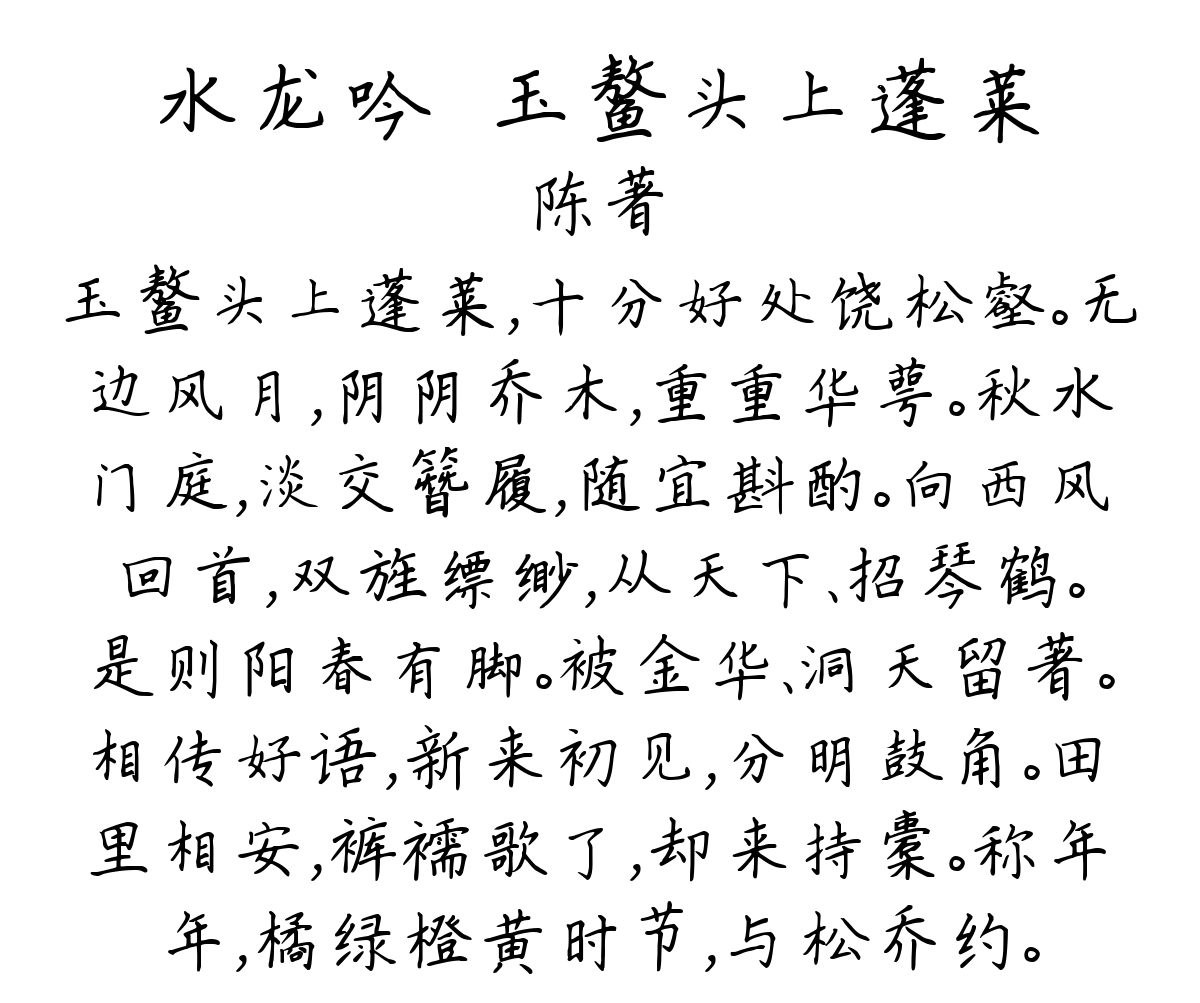 水龙吟 玉鳌头上蓬莱
陈著
玉鳌头上蓬莱,十分好处饶松壑。无
边风月,阴阴乔木,重重华萼。秋水
门庭,淡交簪履,随宜斟酌。向西风
回首,双旌缥缈,从天下、招琴鹤。
是则阳春有脚。被金华、洞天留著。
相传好语,新来初见,分明鼓角。田
里相安,裤襦歌了,却来持橐。称年
年,橘绿橙黄时节,与松乔约。